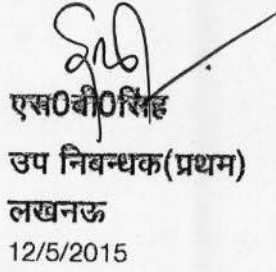 एस0बी0सिंह
उप निबन्धक(प्रथम)
लखनऊ
12/5/2015